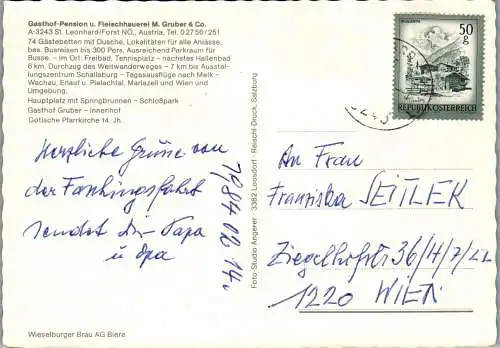 Gasthof-Pension u. Fleischhauerei M. Gruber & Co.
A-3243 St. Leonhard/Forst NÖ., Austria, Tel. 0 27 56/251
74 Gästebetten mit Dusche, Lokalitäten für alle Anlässe,
bes. Busreisen bis 300 Pers. Ausreichend Parkraum für
Busse. – Im Ort: Freibad, Tennisplatz – nächstes Hallenbad
6 km, Durchzug des Weitwanderweges – 7 km bis Ausstel-
lungszentrum Schallaburg – Tagesausflüge nach Melk –
Wachau, Erlauf u. Pielachtal, Mariazell und Wien und
Umgebung.
Hauptplatz mit Springbrunnen – Schloßpark
Gasthof Gruber – Innenhof
Gotische Pfarrkirche 14. Jh.
Herzliche Grüsse von
der Faschingsfahrt
sendet Dir Papa
u Opa
1984 02 14.
Wieselburger Brau AG Biere
Foto-Studio Angerer · 3382 Loosdorf · Reischl-Druck, Salzburg
50
g
REPUBLIK ÖSTERREICH
An Frau
Franziska SEITLER
Ziegelhofstr 36/4/7/22
1220 WIEN